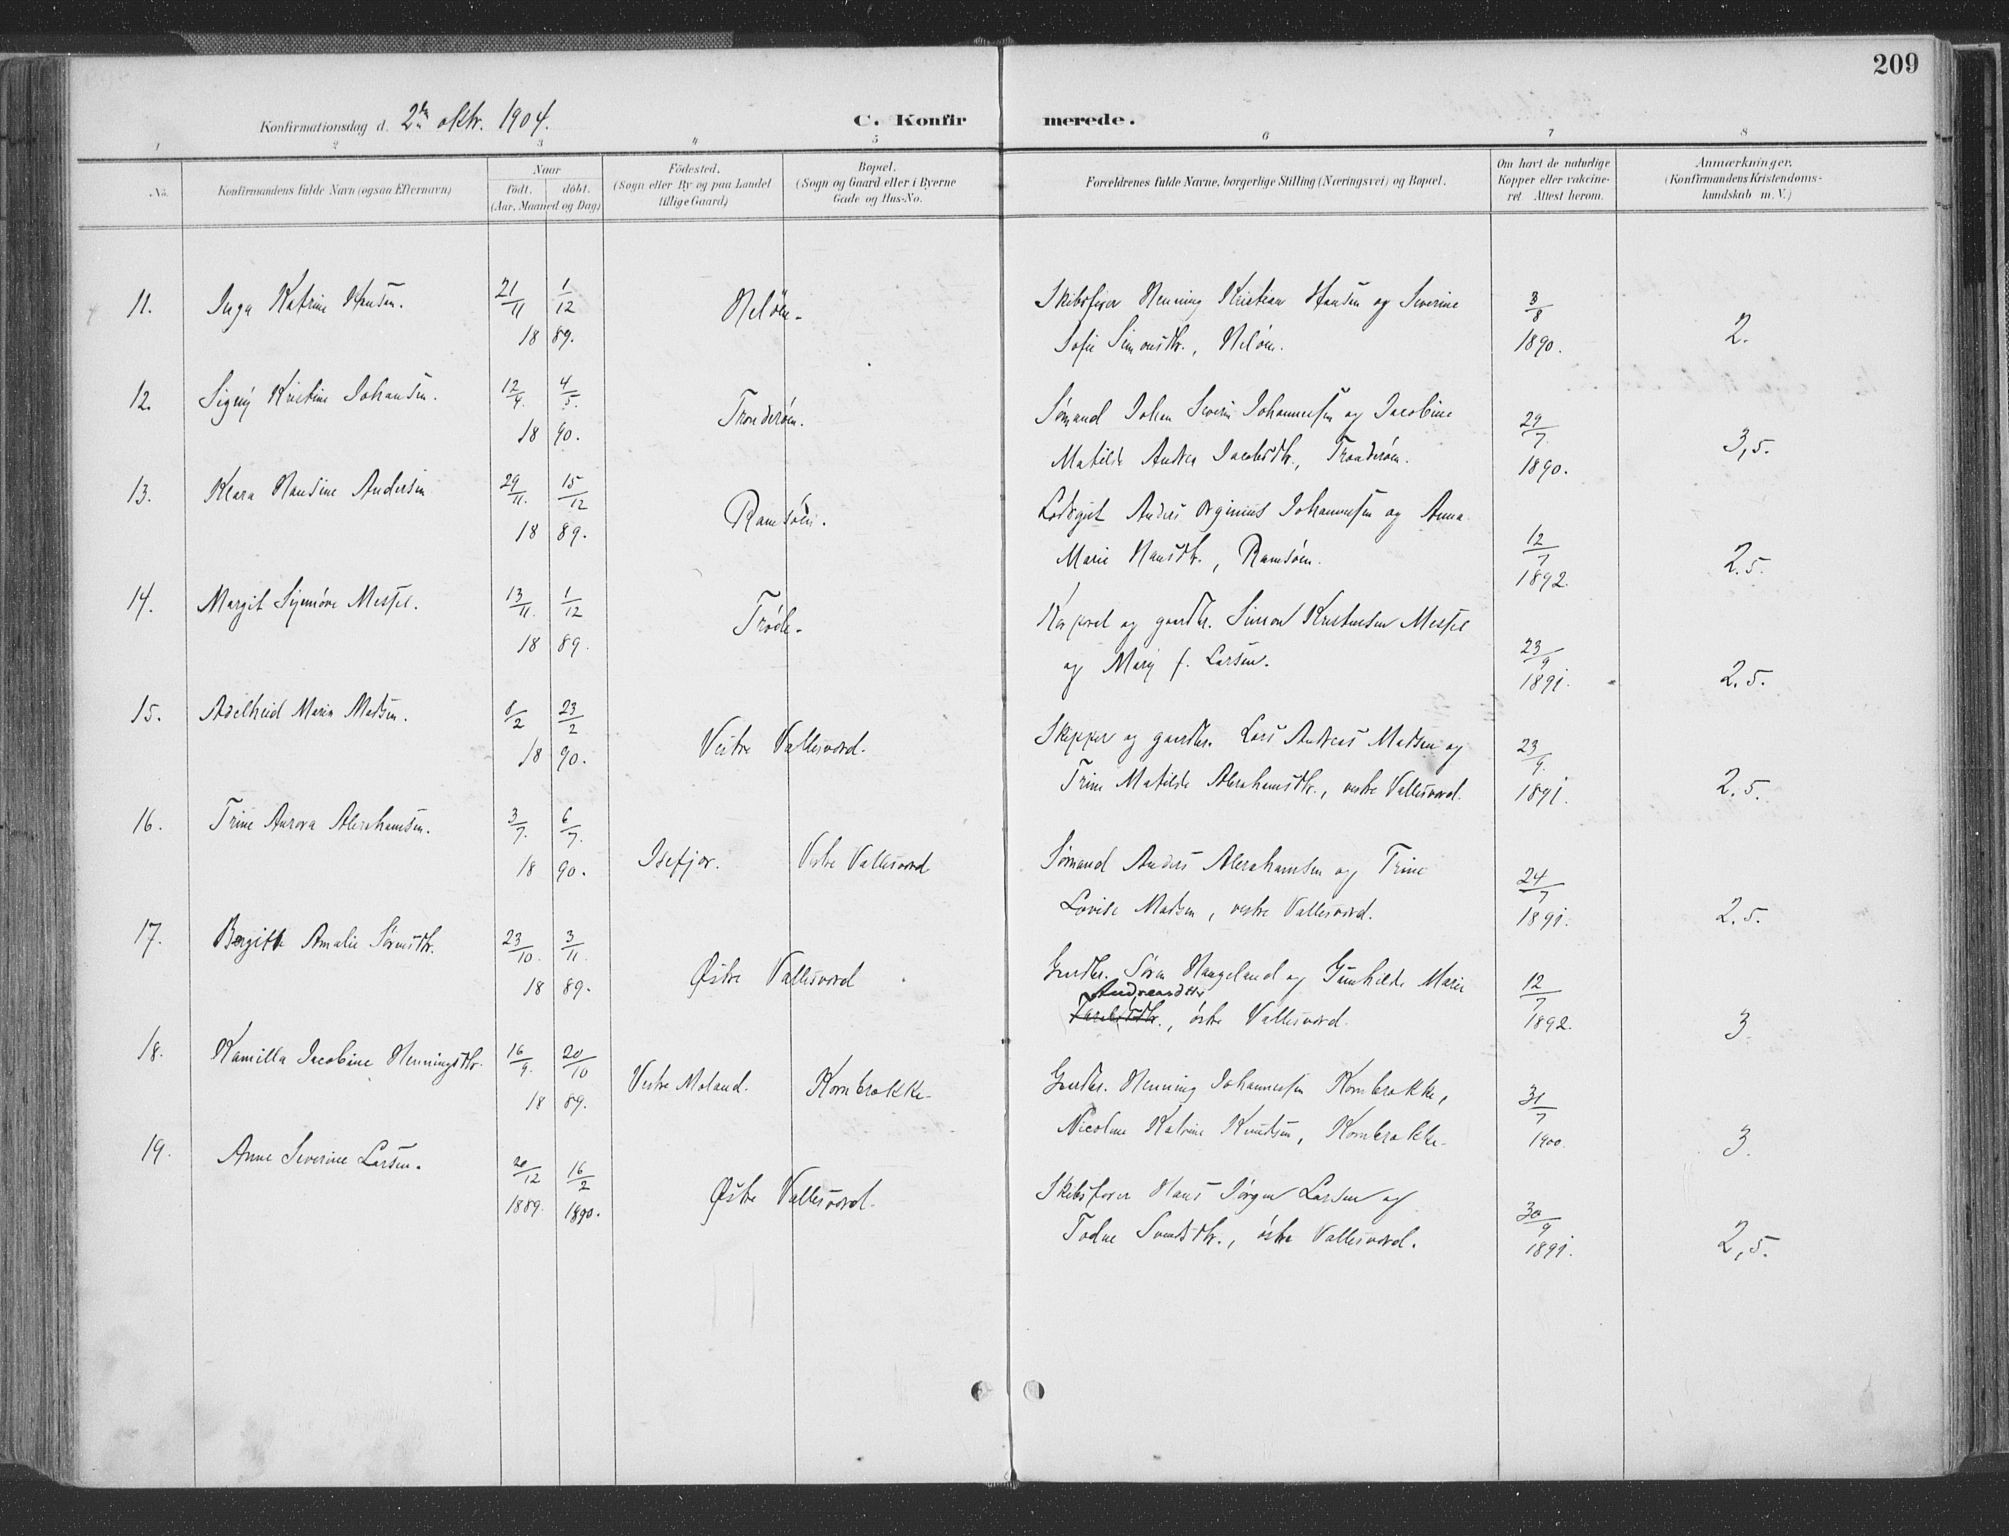 209
Konfirmationsdag d. 2den oktr. 1904.
C. Konfirmerede.
1 2 3 4 5 6 7 8
No. Konfirmandens fulde Navn (ogsaa Efternavn) Naar født. døbt. (Aar, Maaned og Dag) Fødested. (Sogn eller By og paa Landet tillige Gaard) Bopæl. (Sogn og Gaard eller i Byerne Gade og Hus-No. Forældrenes fulde Navne, borgerlige Stilling (Næringsvei) og Bopæl. Om havt de naturlige Kopper eller vakcineret. Attest herom. Anmærkninger. (Konfirmandens Kristendomskundskab m. V.)
11. Inga Katrine Hansen. 21/11 1/12 Heløen. Skibsfører Henning Kristian Hansen og Severine 3/8
18 89. Sofie Simonsdtr., Heløen. 1890. 2.
12. Signy Kristine Johansen. 12/4. 4/5. Tronderøen. Sømand Johan Severin Johannessen og Jacobine 29/7
18 90. Matilde Andrea Jacobsdtr., Tronderøen. 1890. 3,5.
13. Klara Hansine Andersen 29/11. 15/12 Ramsøen. Lodsgut Anders Orginius Johannessen og Anna
18 89. Marie Hansdtr., Ramsøen. 12/7 1892. 2.5.
14. Margit Signøve Messel. 13/11. 1/12 Trøde. og gaardbr. Simon Kristensen Messel
18 89. og Mary f. Larsen. 23/9 1891. 2.5.
15. Adelheid Marie Madsen. 8/2 23/2 Vestre Vallesverd. Skipper og gaardbr. Lars Andreas Madsen og 23/9.
18 90. Trine Matilde Abrahamsdtr., vestre Vallesverd. 1891. 2.5.
16. Trine Aurora Abrahamsen. 3/7. 6/7. Isefjør. Vestre Vallesverd Sømand Anders Abrahamsen og Trine 24/7
18 90. Lovise Madsen, vestre Vallesverd. 1891. 2.5.
17. Birgitte Amalie Sørensdtr. 23/10. 3/11. Østre Vallesverd Gaardbr. Søren Haugeland og Gunhilde Marie 12/7
18 89. Andreasdtr Jacobsdtr., østre Vallesverd. 1892. 3.
18. Kamilla Jacobine Henningsdtr. 16/9. 20/10 Vestre Moland. Kornbrække. Gaardbr. Henning Johannessen Kornbrække, 31/7
18 89. Nicoline Katrine Knudsen, Kornbrække. 1900. 3.
19. Anne Severine Larsen. 20/12 16/2 Østre Vallesverd. Skibsfører Hans Jørgen Larsen og 30/9
1889. 1890. Todne Svendsdtr., østre Vallesverd. 1891. 2,5.